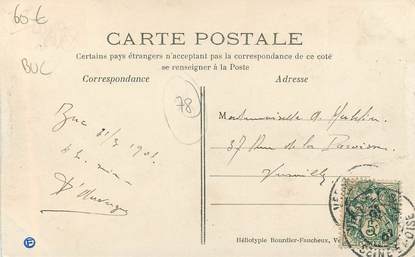 60€
BUC
CARTE POSTALE
Certains pays étrangers n'acceptant pas la correspondance de ce coté
se renseigner à la Poste
Correspondance
Adresse
78
Buc
Mademoiselle
37 Rue de la Paroisse
Versailles
Héliotypie Bourdier-Faucheux, Ve
SEINE
OISE